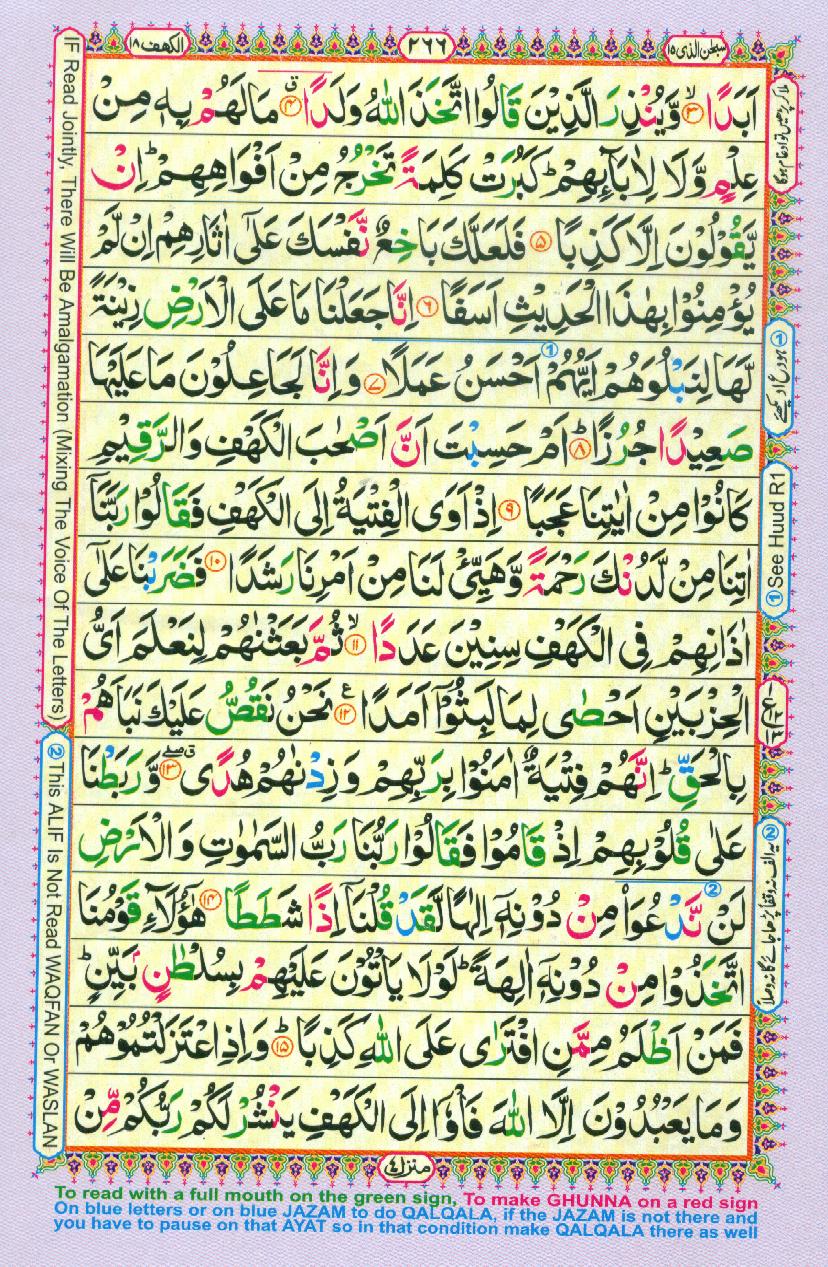 سبحٰن الذی ۱۵
۲۶۶
الکھف ۱۸
اَبَدًا ۙ﴿۳﴾ وَّیُنۡذِرَ الَّذِیۡنَ قَالُوا اتَّخَذَ اللّٰہُ وَلَدًا ﴿ق۴﴾ مَالَہُمۡ بِہٖ مِنۡ
عِلۡمٍ وَّلَا لِاٰبَآئِہِمۡ ؕ کَبُرَتۡ کَلِمَۃً تَخۡرُجُ مِنۡ اَفۡوَاہِہِمۡ ؕ اِنۡ
یَّقُوۡلُوۡنَ اِلَّا کَذِبًا ﴿۵﴾ فَلَعَلَّکَ بَاخِعٌ نَّفۡسَکَ عَلٰۤی اٰثَارِہِمۡ اِنۡ لَّمۡ
یُؤۡمِنُوۡا بِہٰذَا الۡحَدِیۡثِ اَسَفًا ﴿۶﴾ اِنَّا جَعَلۡنَا مَا عَلَی الۡاَرۡضِ زِیۡنَۃً
لَّہَا لِنَبۡلُوَہُمۡ اَیُّہُمۡ اَحۡسَنُ عَمَلًا ﴿۷﴾ وَ اِنَّا لَجَاعِلُوۡنَ مَا عَلَیۡہَا
صَعِیۡدًا جُرُزًا ﴿ؕ۸﴾ اَمۡ حَسِبۡتَ اَنَّ اَصۡحٰبَ الۡکَہۡفِ وَالرَّقِیۡمِ
کَانُوۡا مِنۡ اٰیٰتِنَا عَجَبًا ﴿۹﴾ اِذۡ اَوَی الۡفِتۡیَۃُ اِلَی الۡکَہۡفِ فَقَالُوۡا رَبَّنَاۤ
اٰتِنَا مِنۡ لَّدُنۡکَ رَحۡمَۃً وَّہَیِّیٴۡ لَنَا مِنۡ اَمۡرِنَا رَشَدًا ﴿۱۰﴾ فَضَرَبۡنَا عَلٰۤی
اٰذَانِہِمۡ فِی الۡکَہۡفِ سِنِیۡنَ عَدَدًا ﴿ۙ۱۱﴾ ثُمَّ بَعَثۡنٰہُمۡ لِنَعۡلَمَ اَیُّ
الۡحِزۡبَیۡنِ اَحۡصٰی لِمَا لَبِثُوۡۤا اَمَدًا ﴿ع۱۲﴾ نَحۡنُ نَقُصُّ عَلَیۡکَ نَبَاَہُمۡ
بِالۡحَقِّ ؕ اِنَّہُمۡ فِتۡیَۃٌ اٰمَنُوۡا بِرَبِّہِمۡ وَ زِدۡنٰہُمۡ ہُدًی ﴿۱۳﴾ وَّ رَبَطۡنَا
عَلٰی قُلُوۡبِہِمۡ اِذۡ قَامُوۡا فَقَالُوۡا رَبُّنَا رَبُّ السَّمٰوٰتِ وَ الۡاَرۡضِ
لَنۡ نَّدۡعُوَا۠ مِنۡ دُوۡنِہٖۤ اِلٰـہًا لَّقَدۡ قُلۡنَاۤ اِذًا شَطَطًا ﴿۱۴﴾ ہٰۤؤُلَآءِ قَوۡمُنَا
اتَّخَذُوۡا مِنۡ دُوۡنِہٖۤ اٰلِہَۃً ؕ لَوۡلَا یَاۡتُوۡنَ عَلَیۡہِمۡ بِسُلۡطٰنٍۭ بَیِّنٍ ؕ
فَمَنۡ اَظۡلَمُ مِمَّنِ افۡتَرٰی عَلَی اللّٰہِ کَذِبًا ﴿ؕ۱۵﴾ وَ اِذِ اعۡتَزَلۡتُمُوۡہُمۡ
وَ مَا یَعۡبُدُوۡنَ اِلَّا اللّٰہَ فَاۡ وٗۤا اِلَی الۡکَہۡفِ یَنۡشُرۡ لَکُمۡ رَبُّکُمۡ مِّنۡ
منزل ۴
IF Read Jointly, There Will Be Amalgamation (Mixing The Voice Of The Letters)
② This ALIF Is Not Read WAQFAN Or WASLAN
① See Huud R1
To read with a full mouth on the green sign, To make GHUNNA on a red sign
On blue letters or on blue JAZAM to do QALQALA, if the JAZAM is not there and
you have to pause on that AYAT so in that condition make QALQALA there as well